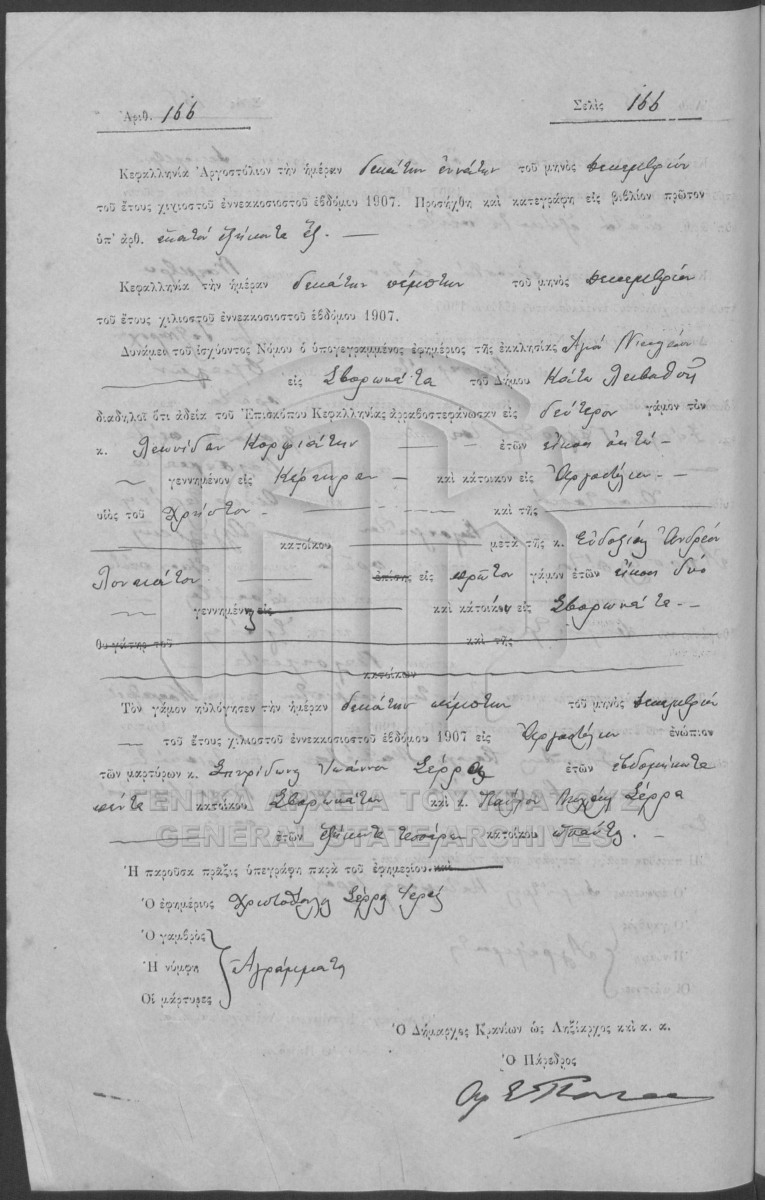 Ἀριθ. 166 Σελὶς 166
Κεφαλληνία Ἀργοστόλιον τὴν ἡμέραν δεκάτην ἐννάτην τοῦ μηνὸς Δεκεμβρίου
τοῦ ἔτους χιλιοστοῦ ἐννεακοσιοστοῦ ἑβδόμου 1907. Προσήχθη καὶ κατεγράφη εἰς βιβλίον πρῶτον
ὑπ' ἀριθ. ἑκατὸν ἑξήκοντα ἕξ. —
Κεφαλληνία τὴν ἡμέραν δεκάτην πέμπτην τοῦ μηνὸς Δεκεμβρίου
τοῦ ἔτους χιλιοστοῦ ἐννεακοσιοστοῦ ἑβδόμου 1907.
Δυνάμει τοῦ ἰσχύοντος Νόμου ὁ ὑπογεγραμμένος ἐφημέριος τῆς ἐκκλησίας Ἁγίου Νικολάου
εἰς Σβορωνάτα τοῦ Δήμου Κάτω Λειβαθοῦς
διαδηλοῖ ὅτι ἀδείᾳ τοῦ Ἐπισκόπου Κεφαλληνίας ἀρραβοστεφάνωσαν εἰς δεύτερον γάμον τὸν
κ. Λεωνίδαν Κορφιάτην ἐτῶν εἴκοσι ὀκτὼ
γεννημένον εἰς Κέρκυραν καὶ κάτοικον εἰς Ἀργοστόλιον
υἱὸς τοῦ Χρήστου καὶ τῆς
κατοίκου μετὰ τῆς κ. Εὐδοξίας Ἀνδρέου
εἰς πρῶτον γάμον ἐτῶν εἴκοσι δύο
γεννημένης εἰς καὶ κάτοικον εἰς Σβορωνάτα
θυγάτηρ τοῦ καὶ τῆς
κατοίκων
Τὸν γάμον ηὐλόγησεν τὴν ἡμέραν δεκάτην πέμπτην τοῦ μηνὸς Δεκεμβρίου
τοῦ ἔτους χιλιοστοῦ ἐννεακοσιοστοῦ ἑβδόμου 1907 εἰς Ἀργοστόλιον ἐνώπιον
τῶν μαρτύρων κ. Σπυρίδωνος Ἰωάννου Σέρρα ἐτῶν ἑβδομήκοντα
πέντε κατοίκου Σβορωνάτων καὶ κ. Παύλου Σέρρα
ἐτῶν ἑξήκοντα τεσσάρων κατοίκου
ΓΕΝΙΚΑ ΑΡΧΕΙΑ ΤΟΥ ΚΡΑΤΟΥΣ
GENERAL STATE ARCHIVES
Ἡ παροῦσα πρᾶξις ὑπεγράφη παρὰ τοῦ ἐφημερίου καὶ
Ὁ ἐφημέριος Σέρρας Ἱερεὺς
Ὁ γαμβρὸς
Ἡ νύμφη Ἀγράμματοι
Οἱ μάρτυρες
Ὁ Δήμαρχος Κρανίων ὡς Ληξίαρχος καὶ κ. κ.
Ὁ Πάρεδρος